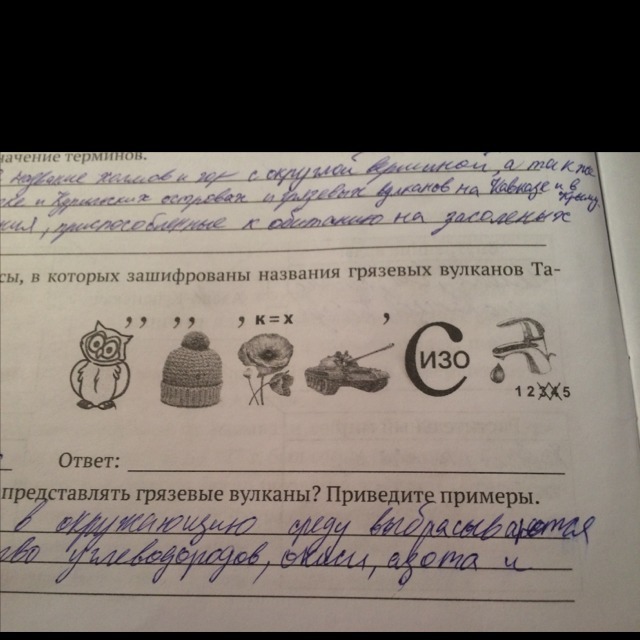 начение терминов.
название холмов и гор с округлой вершиной, а также
ке и Курильских островах и грязевых вулканов на Кавказе и в Крыму
ния, приспособленные к обитанию на засоленых
сы, в которых зашифрованы названия грязевых вулканов Та-
,, ,, , к=х ,
С ИЗО
1 2 3 4 5
Ответ:
представлять грязевые вулканы? Приведите примеры.
в окружающую среду выбрасываются
тво углеводородов, окиси, азота и